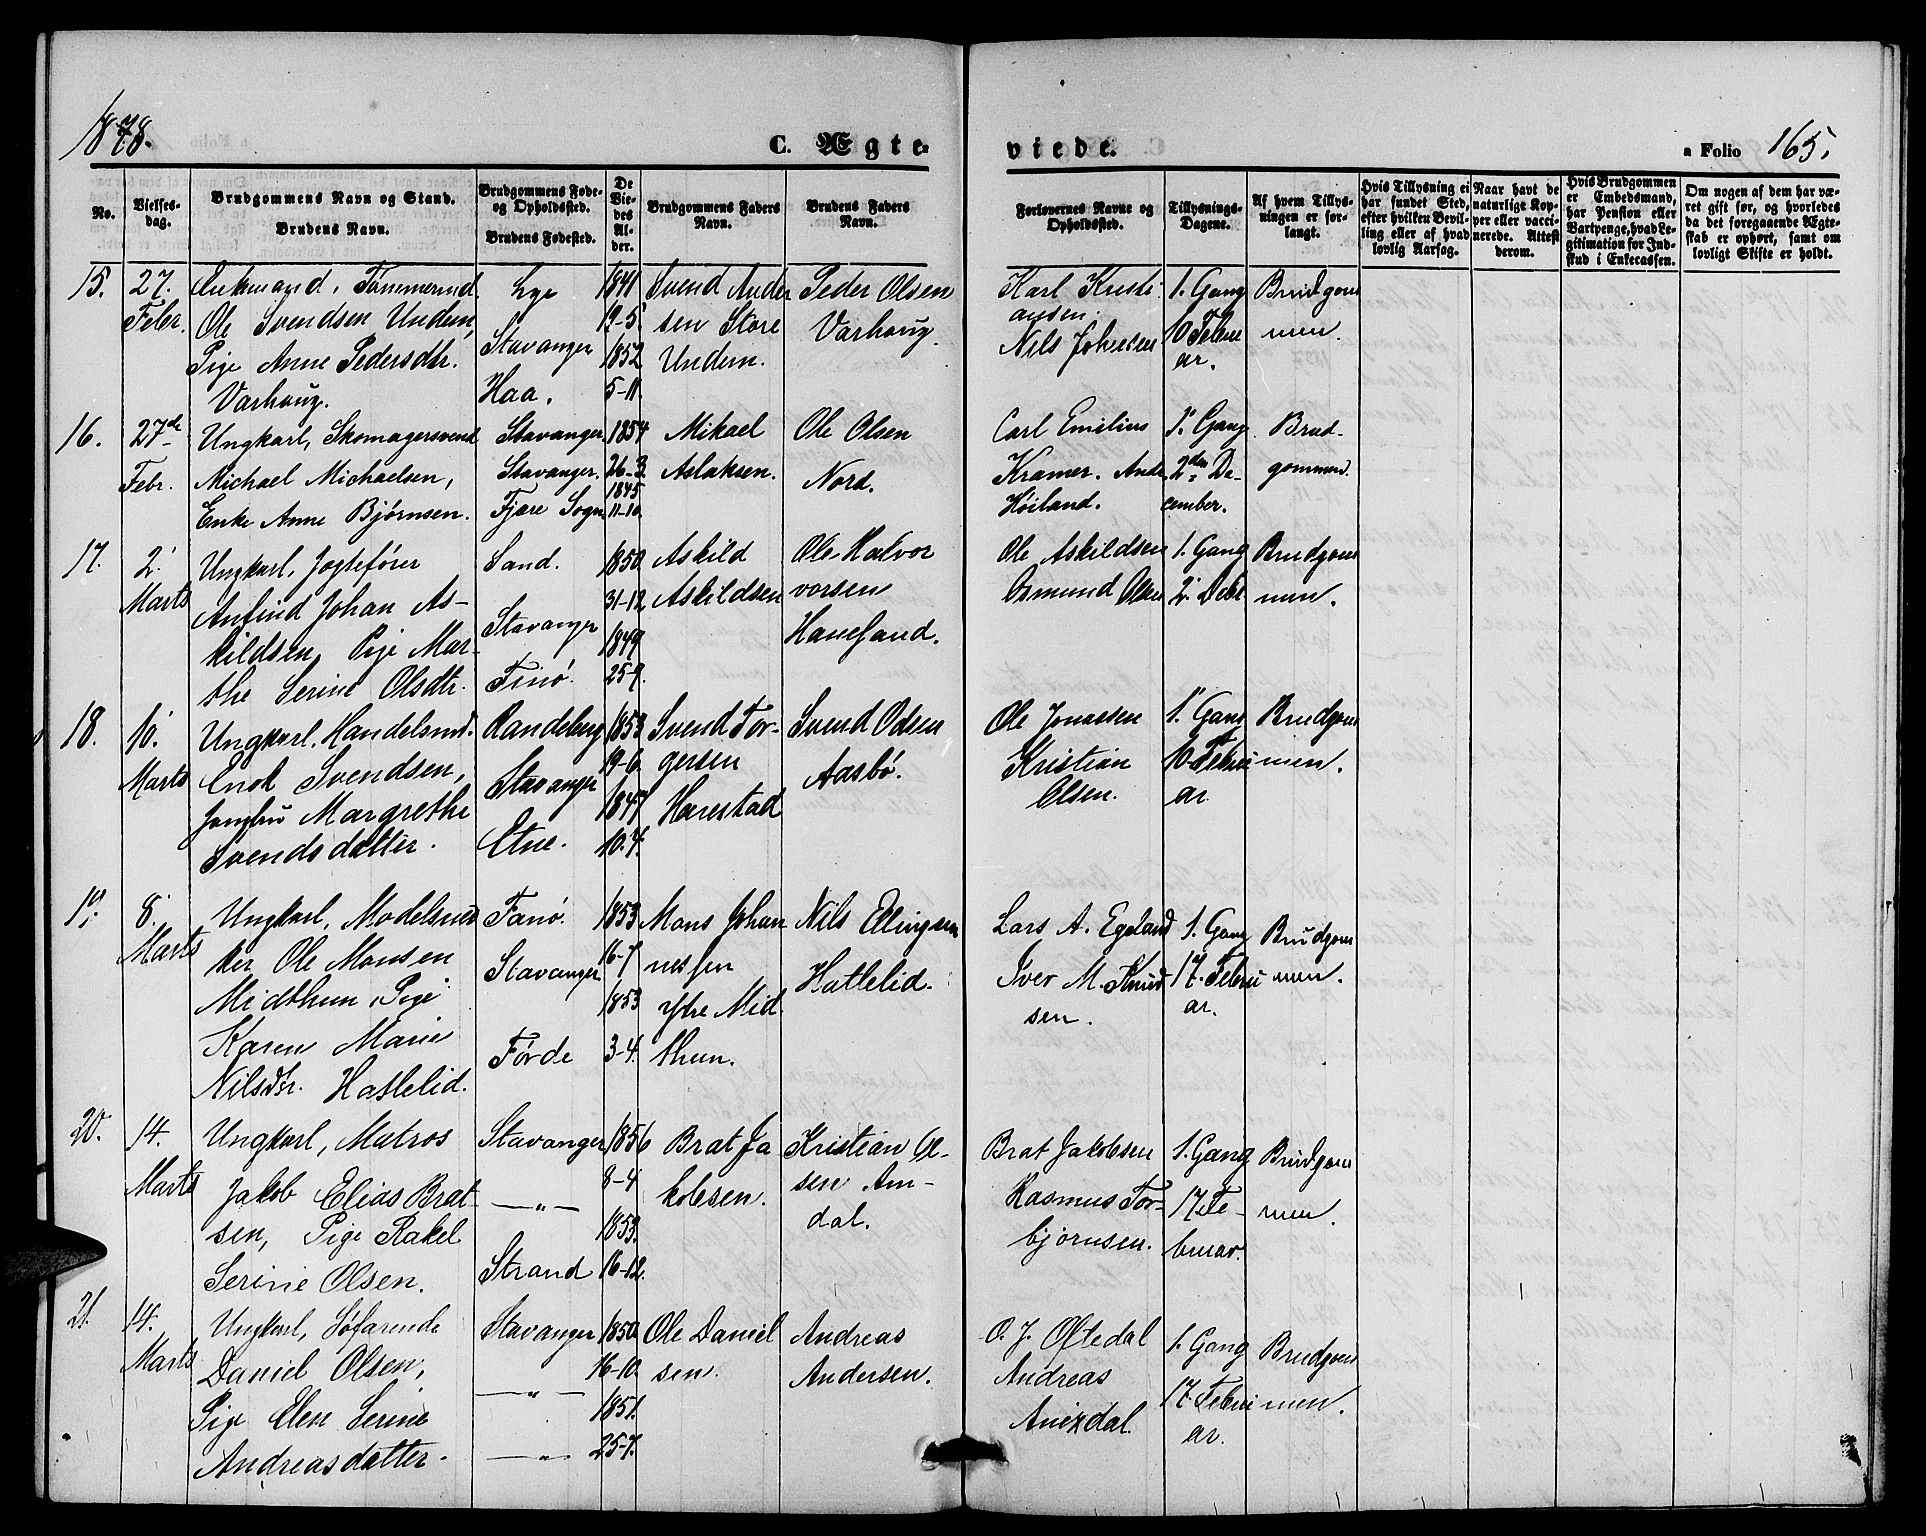 1878.
C. Ægte-
viede.
a Folio 165.
No.
Vielses-
dag.
Brudgommens Navn og Stand.
Brudens Navn.
Brudgommens Føde-
og Opholdssted.
Brudens Fødested.
De
Vie-
des
Al-
der.
Brudgommens Faders
Navn.
Brudens Faders
Navn.
Forlovernes Navne og
Opholdssted.
Tillysnings-
Dagene.
Af hvem Tillys-
ningen er for-
langt.
Hvis Tillysning ei
har fundet Sted,
efter hvilken Bevil-
ling eller af hvad
lovlig Aarsag.
Naar havt de
naturlige Kop-
per eller vacci-
nerede. Attest
derom.
Hvis Brudgommen
er Embedsmand,
har Pension eller
Vartpenge, hvad Le-
gitimation for Ind-
skud i Enkecassen.
Om nogen af dem har væ-
ret gift før, og hvorledes
da det foregaaende Ægte-
skab er ophørt, samt om
lovligt Skifte er holdt.
15.
27.
Febr.
Enkemand, Tømmermd.
Ole Svendsen Undem,
Pige Anne Pedersdtr.
Varhoug.
Lye
Stavanger
Haa.
1841
19-5.
1852
5-11.
Svend Ander
sen Store
Undem.
Peder Olsen
Varhoug.
Karl Kristi
ansen.
Nils Johnsen
1. Gang
10 Febru
ar.
Brudgom
men.
16.
27de
Febr.
Ungkarl, Skomagersvend
Michael Michaelsen,
Enke Anne Bjørnsen.
Stavanger.
Stavanger.
Fjære Sogn
1854
26-3.
1845
11-10.
Mikael
Aslaksen.
Ole Olsen
Nord.
Carl Emilius
Kramer. Ande
Høiland.
1. Gang
2den De-
cember.
Brud-
gommen.
17.
2.
Marts
Ungkarl, Jagtefører
Anfind Johan As-
kildsen, Pige Mar-
the Serine Olsdtr.
Sand.
Stavanger
Finø.
1850.
31-12
1849
25-7.
Askild
Askildsen
Ole Halvor
vorsen
Hanesand.
Ole Askildsen
Osmund Olsen
1. Gang
2. Debr
Brudgom
men.
18.
10.
Marts
Ungkarl, Handelsmd.
Enok Svendsen,
Jomfru Margrethe
Svendsdatter.
Randeberg
Stavanger
Etne.
1853
19-6.
1847
10-4.
Svend Tor-
gersen
Harestad
Svend Odsen
Aasbø.
Ole Jonassen
Kristian
Olsen.
1. Gang
10 Febru
ar.
Brudgom
men.
19.
8.
Marts
Ungkarl, Modelsned
ker Ole Monsen
Midthun, Pige
Karen Marie
Nilsdtr. Hatlelid.
Fanø.
Stavanger
Førde
1853
16-7
1853
3-4.
Mons Johan
nessen
Ytre Mid
thun.
Nils Ellingsen
Hatlelid.
Lars A. Egeland
Iver M. Knud
sen.
1. Gang
17. Febru
ar.
Brudgom
men.
20.
14.
Marts
Ungkarl, Matros
Jakob Elias Brat
sen, Pige Rakel
Serine Olsen.
Stavanger
—„—
Strand
1856
8-4
1853.
16-12.
Brat Ja
kobsen.
Kristian Ol-
sen Am-
dal.
Brat Jakobsen
Rasmus Tor-
bjørnsen.
1. Gang
17. Fe-
bruar.
Brudgom
men.
21.
14.
Marts
Ungkarl, Søfarende
Daniel Olsen,
Pige Elen Serine
Andreasdatter.
Stavanger
—„—
—„—
1850.
16-10.
1851.
25-7.
Ole Daniel
sen.
Andreas
Andersen.
O. J. Oftedal
Andreas
1. Gang
17. Febru
ar.
Brudgom
men.